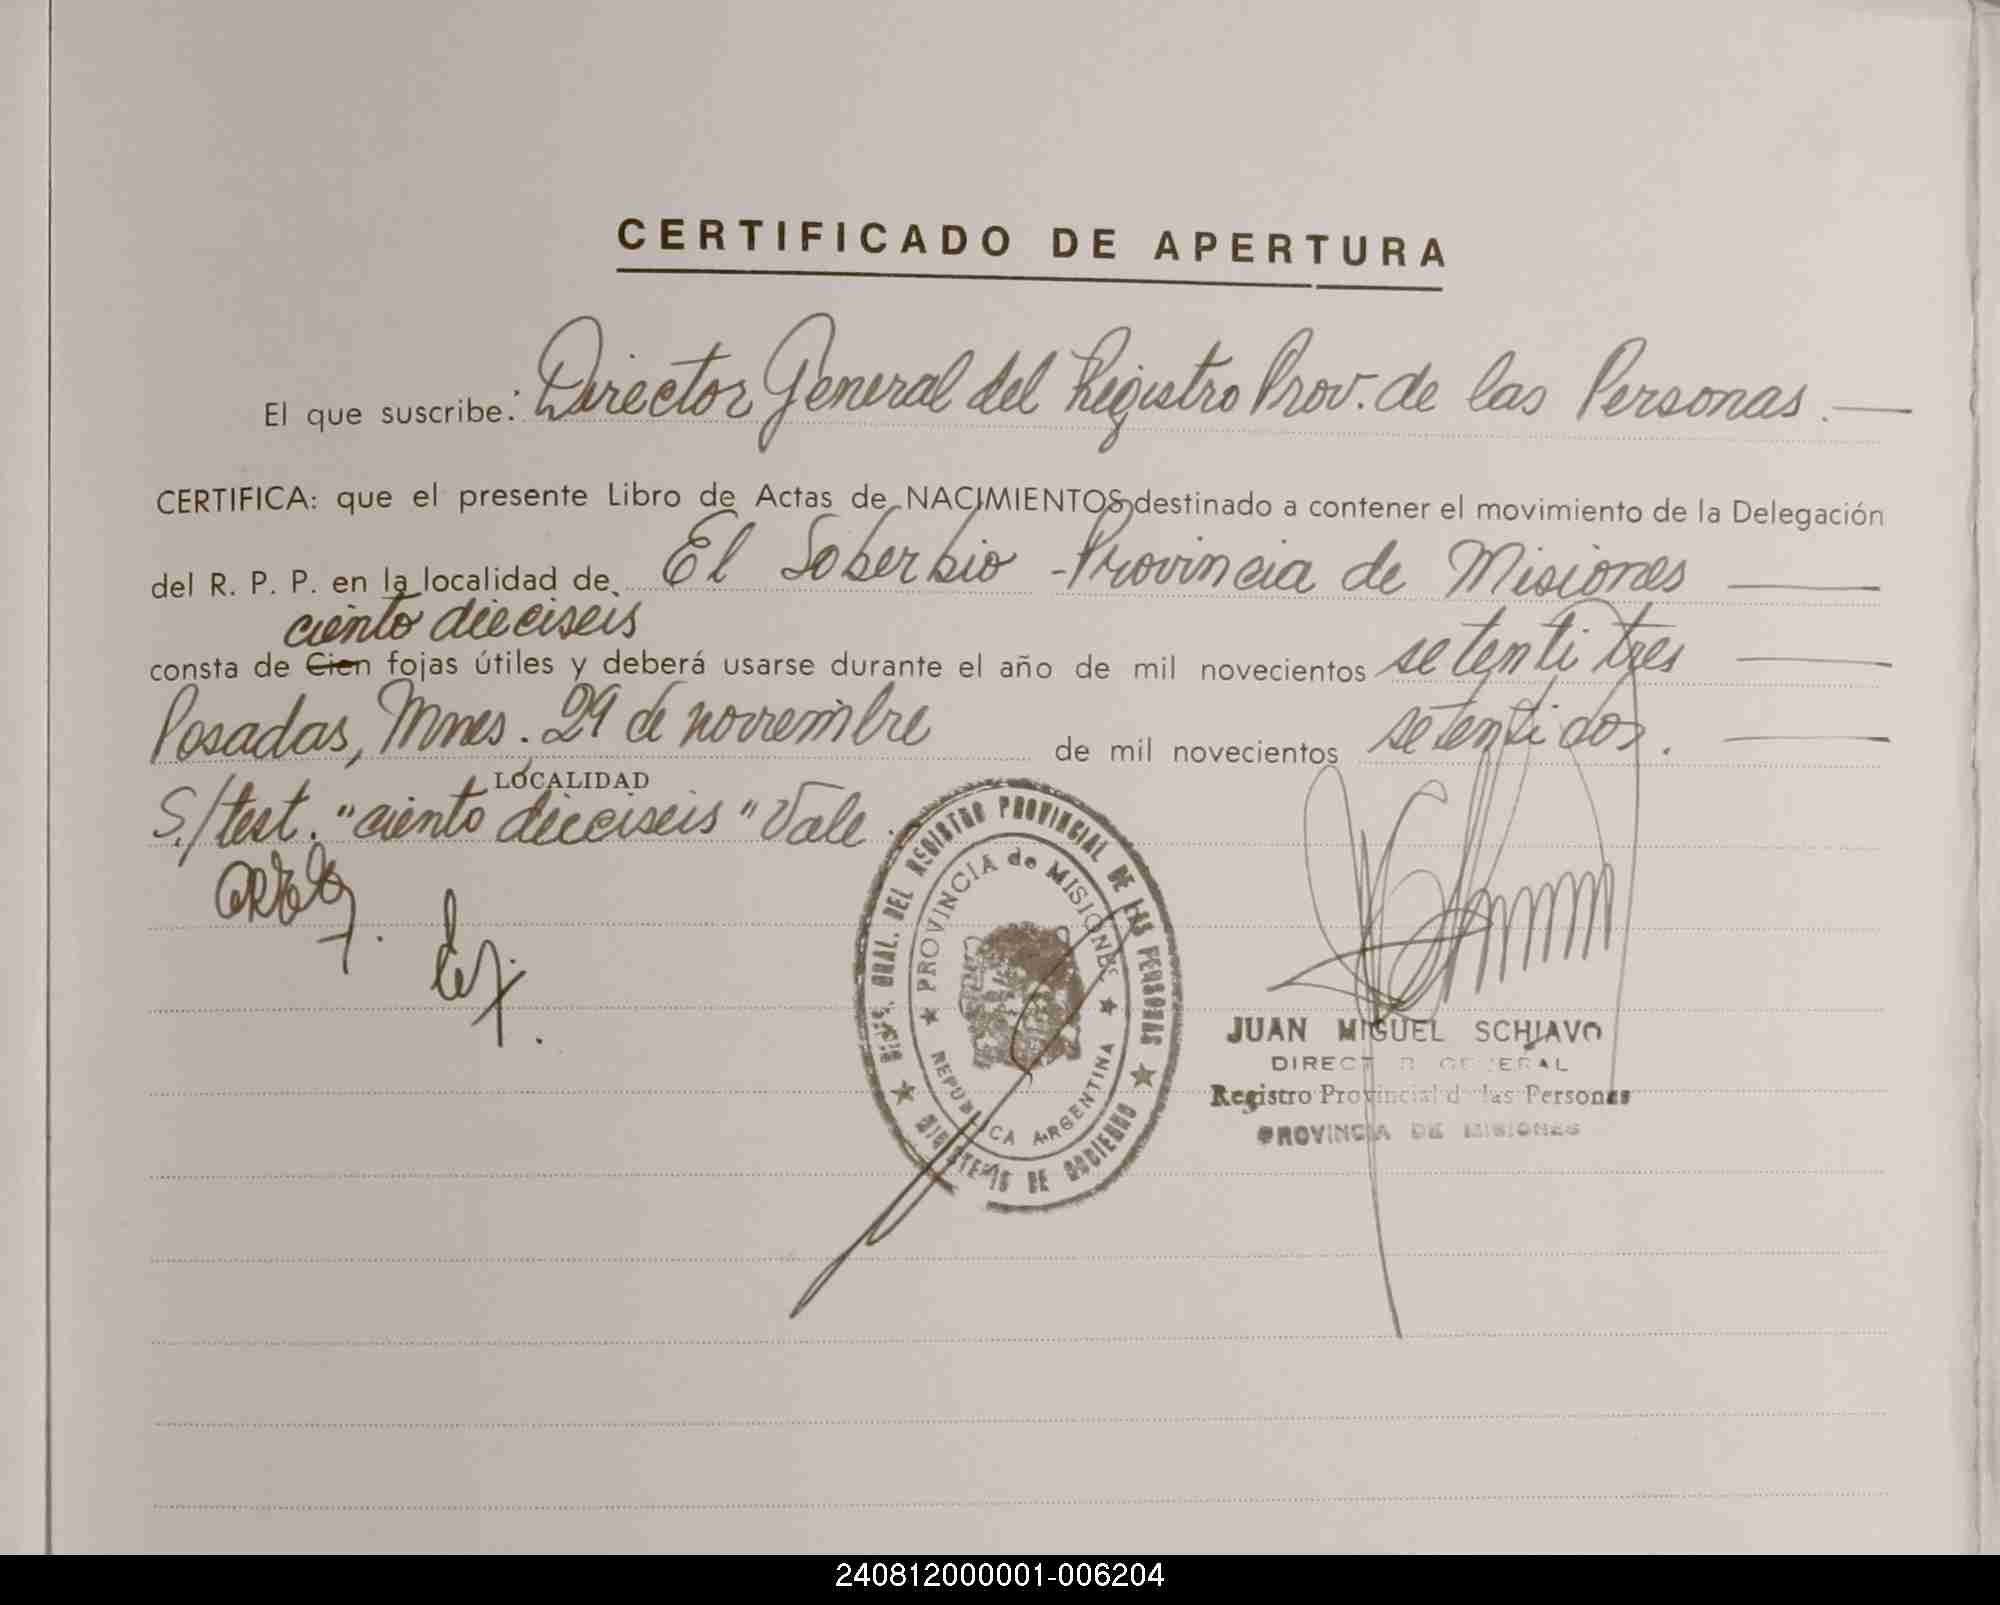 CERTIFICADO DE APERTURA
El que suscribe: Director General del Registro Prov. de las Personas.
CERTIFICA: que el presente Libro de Actas de NACIMIENTOS destinado a contener el movimiento de la Delegación
del R. P. P. en la localidad de El Soberbio - Provincia de Misiones
ciento dieciseis
consta de Cien fojas útiles y deberá usarse durante el año de mil novecientos setenti tres
Posadas, Mnes. 29 de noviembre de mil novecientos setenti dos.
LOCALIDAD
S/test. "ciento dieciseis" Vale
DEL REGISTRO PROVINCIAL DE LAS PERSONAS
PROVINCIA de MISIONES
REPUBLICA ARGENTINA
MINISTERIO DE GOBIERNO
JUAN MIGUEL SCHIAVO
DIRECTOR GENERAL
Registro Provincial de las Personas
PROVINCIA DE MISIONES
240812000001-006204